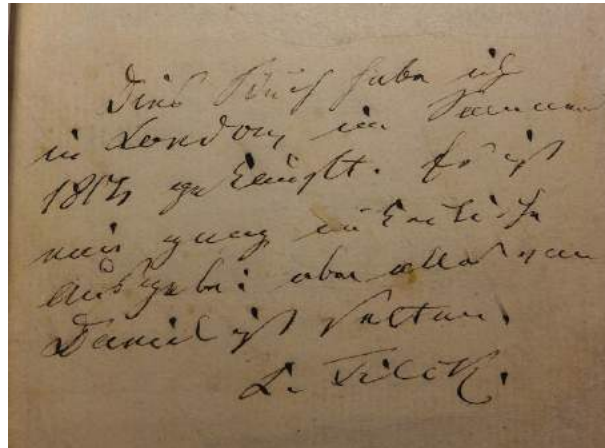 Dies Buch habe ich
in London, im Sommer
1817 gekauft. Es ist
ganz unkritische
Ausgabe: aber alles von
Daniel ist selten.
L. Tieck.